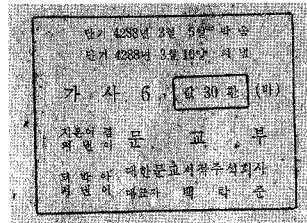 단기 4288년 3월 5일 박음
단기 4288년 3월 10일 펴냄
가사 6. 값 30환 (마)
지은이 겸
펴낸이 문 교 부
박아
펴낸이 대한문교서적주식회사
대표자 백 낙 준